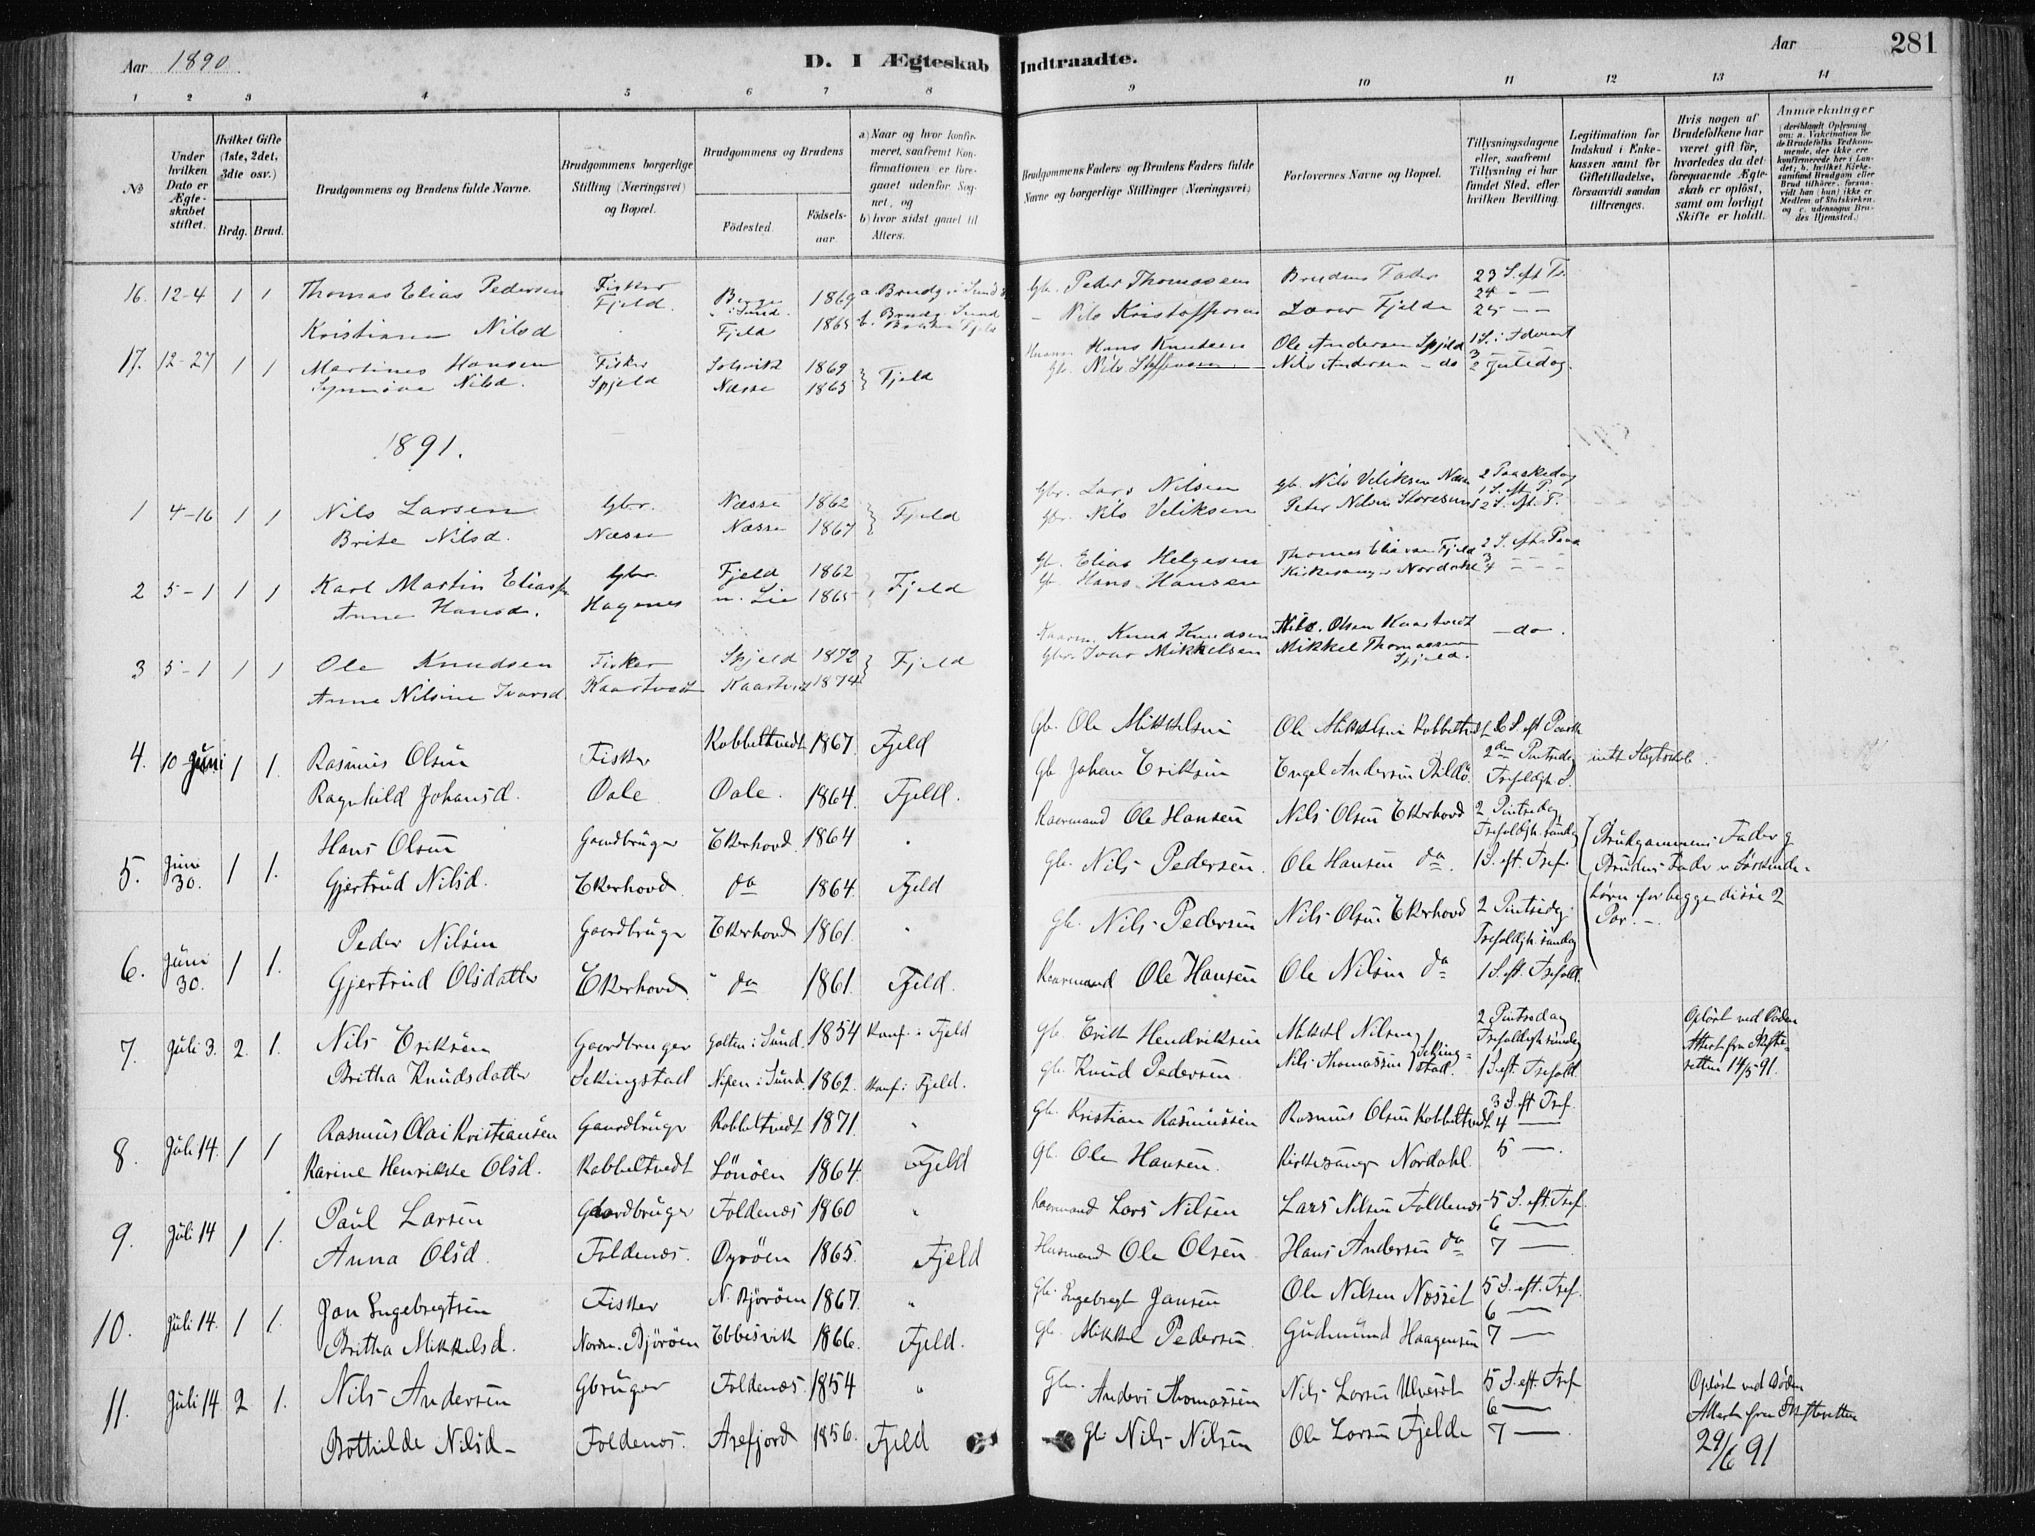 Aar 1890. D. I Ægteskab Indtraadte. Aar 281
1 2 3 4 5 6 7 8 9 10 11 12 13 14
№
Under hvilken Dato er Ægteskabet stiftet.
Hvilket Gifte (1ste, 2det, 3die osv.)
Brdg. Brud.
Brudgommens og Brudens fulde Navne.
Brudgommens borgerlige Stilling (Næringsvei) og Bopæl.
Brudgommens og Brudens
Födested.
Födselsaar.
a) Naar og hvor konfirmeret, saafremt Konfirmationen er foregaaet udenfor Sognet, og
b) hvor sidst gaaet til Alters.
Brudgommens Faders og Brudens Faders fulde Navne og borgerlige Stillinger (Næringsvei)
Forlovernes Navne og Bopæl.
Tillysningsdagene eller, saafremt Tillysning ei har fundet Sted, efter hvilken Bevilling.
Legitimation for Indskud i Enkekassen samt for Giftetilladelse, forsaavidt saadan tiltrænges.
Hvis nogen af Brudefolkene har været gift för, hvorledes da det foregaaende Ægteskab er oplöst, samt om lovligt Skifte er holdt.
Anmærkninger
(deriblandt Oplysning om: a. Vakcination for de Brudefolks Vedkommende, der ikke ere konfirmerede her i Landet; b. hvilket Kirkesamfund Brudgom eller Brud tilhörer, forsaavidt han (hun) ikke er Medlem af Statskirken, og c. udensogns Brudes Hjemsted.)
16. 12-4 1 1 Thomas Elias Pedersen Fisker 1869 a. Brudg. i Sund Gb. Peder Thomassen Brudens Fader 23 S. eft Tr.
Fjeld. i Sund. b. Brudg. Sund 24 - -
Kristiane Nilsd Fjeld 1865 - Nils Kristoffersen Lærer Fjelde 25 - -
17. 12-27 1 1 Martines Hansen Fisker Solsvik 1869 Hans Knudsen Ole Andersen Spjeld 1 S. i Advent
Synnöve Nilsd. Spjeld Næsse 1865 Fjeld Gb. Nils Nils Andersen - do 3 -
2 Juledag.
1891.
1 4-16 1 1 Nils Larsen Gbr. Næsse 1862 Fjeld Gbr. Lars Nilsen Gb. Nils Veliksen Næsse 2 Paaskedag
Brite Nilsd. Næsse Næsse 1867 Gbr. Nils Veliksen Peter Nilsen Storesund 1 S. eft. P.
2 S. eft. P.
2 5-1 1 1 Karl Martin Eliass. Gbr. Fjeld 1862 Fjeld Gb. Elias Helgesen Thomas Eliassen Fjeld 2 S. eft. Paask
Anne Hansd. Hagenes n. Lie 1865 Gb. Hans Hansen Kirkesanger Nordahl 3 - -
4 - -
3 5-1 1 1 Ole Knudsen Fisker Spjeld 1872 Fjeld Knud Knudsen Nils Olsen Kaartvedt - do -
Anne Nilsine Ivarsd. Kaartvedt Kaartvedt 1874 Gbr. Ivar Mikkelsen Mikkel Thomassen Spjeld.
4. 10 Juni 1 1. Rasmus Olsen Fisker Kobbeltvedt 1867. Fjeld Gb. Ole Mikkelsen Ole Mikkelsen Kobbeltvedt 6 S. eft Paaske
2den Pintsedag
Ragnhild Johansd. Dale Dale. 1864. Fjeld. Gb Johan Eriksen Engel Andersen Trefoldgh. S.
5. Juni 30. 1 1. Hans Olsen Gaardbruger Ekerhovd 1864 Kaarmand Ole Hansen Nils Olsen Ekerhovd 2 Pintsedag
Trefoldgh. sündag
Gjertrud Nilsd. Ekerhovd do 1864. Fjeld Gb. Nils Pedersen. Ole Hansen do. 1 S. eft. Tref.
Brudgommens Fader og
Brudens Fader er Söskende-
börn for begge disse 2
Par. -
6. Juni 30. 1 1. Peder Nilsen Gaardbruger Ekerhovd 1861. Gb. Nils Pedersen Nils Olsen Ekerhovd 2 Pintsedag
Trefoldgh. sündag
Gjertrud Olsdatter Ekerhovd. do 1861. Fjeld. Kaarmand Ole Hansen Ole Nilsen do 1 S. eft. Trefold.
7. Juli 3. 2. 1. Nils Eriksen Gaardbruger Golten i Sund. 1854 Konf. i Fjeld Gb Erik Hendriksen Mikkel Nilsen 2 Pintsedag Oplöst ved Döden
Trefoldigh sündag Attest fra Skifte-
Britha Knudsdatter Sekingstad Nipen i Sund. 1862. Konf. i Fjeld. Gb. Knud Pedersen. Nils Thomassen Sekingstad. 1 S. eft. Trefold. retten 14/5 91.
8. Juli 14. 1 1 Rasmus Olai Kristiansen Gaardbruger Kobbeltvedt 1871. Gb. Kristian Rasmussen Rasmus Olsen Kobbeltvedt 3 S. eft Tref.
4 -
Karine Henrikke Olsd. Kobbeltvedt Lönöen 1864. Fjeld Gb. Ole Hansen. Kirkesanger Nordahl. 5 -
9. Juli 14 1 1. Paul Larsen Gaardbruger Foldenæs 1860 Kaarmand Lars Nilsen Lars Nilsen Foldenæs 5 S. eft. Tref.
6 -
Anna Olsd. Foldenæs. Dyröen 1865. Fjeld Husmand Ole Olsen Hans Andersen do 7 -
10. Juli 14. 1 1. Jon Engebregtsen Fisker N. Björöen 1867. Gb. Engebregt Jansen Ole Nilsen Næsset 5 S. eft. Tref.
6 -
Britha Mikkelsd. Nordr. Björöen Ebbesvik 1866. Fjeld. Gb. Mikkel Pedersen Gudmund Haagensen 7 -
11. Juli 14. 2 1. Nils Andersen Gbruger Foldenæs 1854 Gbr. Anders Thomassen Nils Larsen Ulveset 5 S. eft. Tref Oplöst ved Döden
6 - Attest fra Skifteretten
Bothilde Nilsd- Foldenæs. Arefjord 1856. Fjeld Gb. Nils Nilsen Ole Larsen Fjelde 7 - 29/6 91